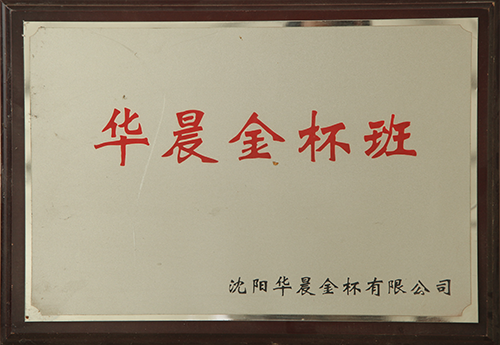 华晨金杯班
沈阳华晨金杯有限公司